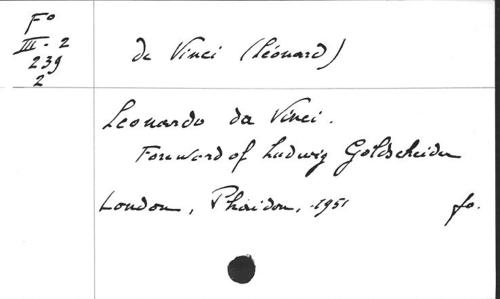 Fo
III-2
239
2
da Vinci (Léonard)
Leonardo da Vinci.
Foreword of Ludwig Goldscheider
London, Phaidon, 1951 fo.